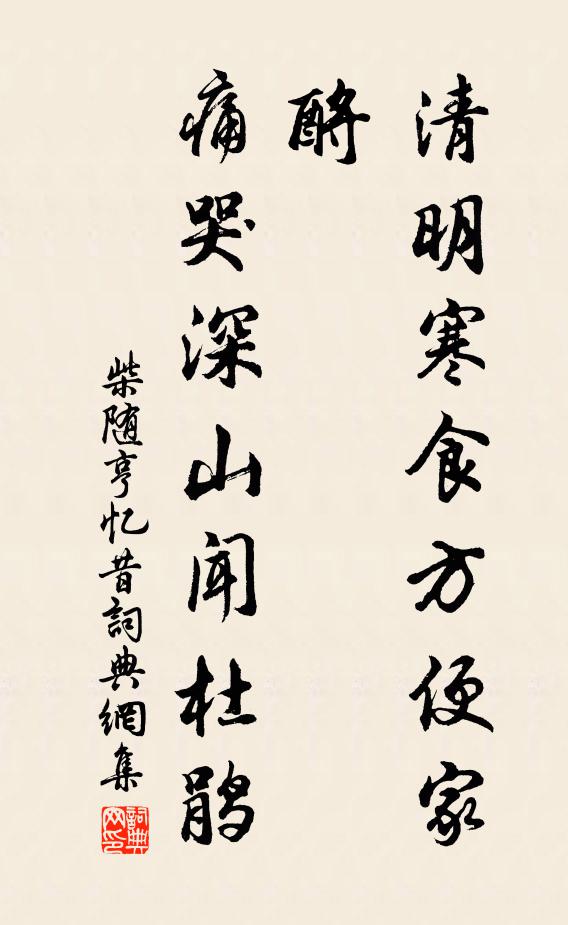 清明寒食方便家
酹
痛哭深山闻杜鹃
柴随亨忆昔詞典網集
詞典网印